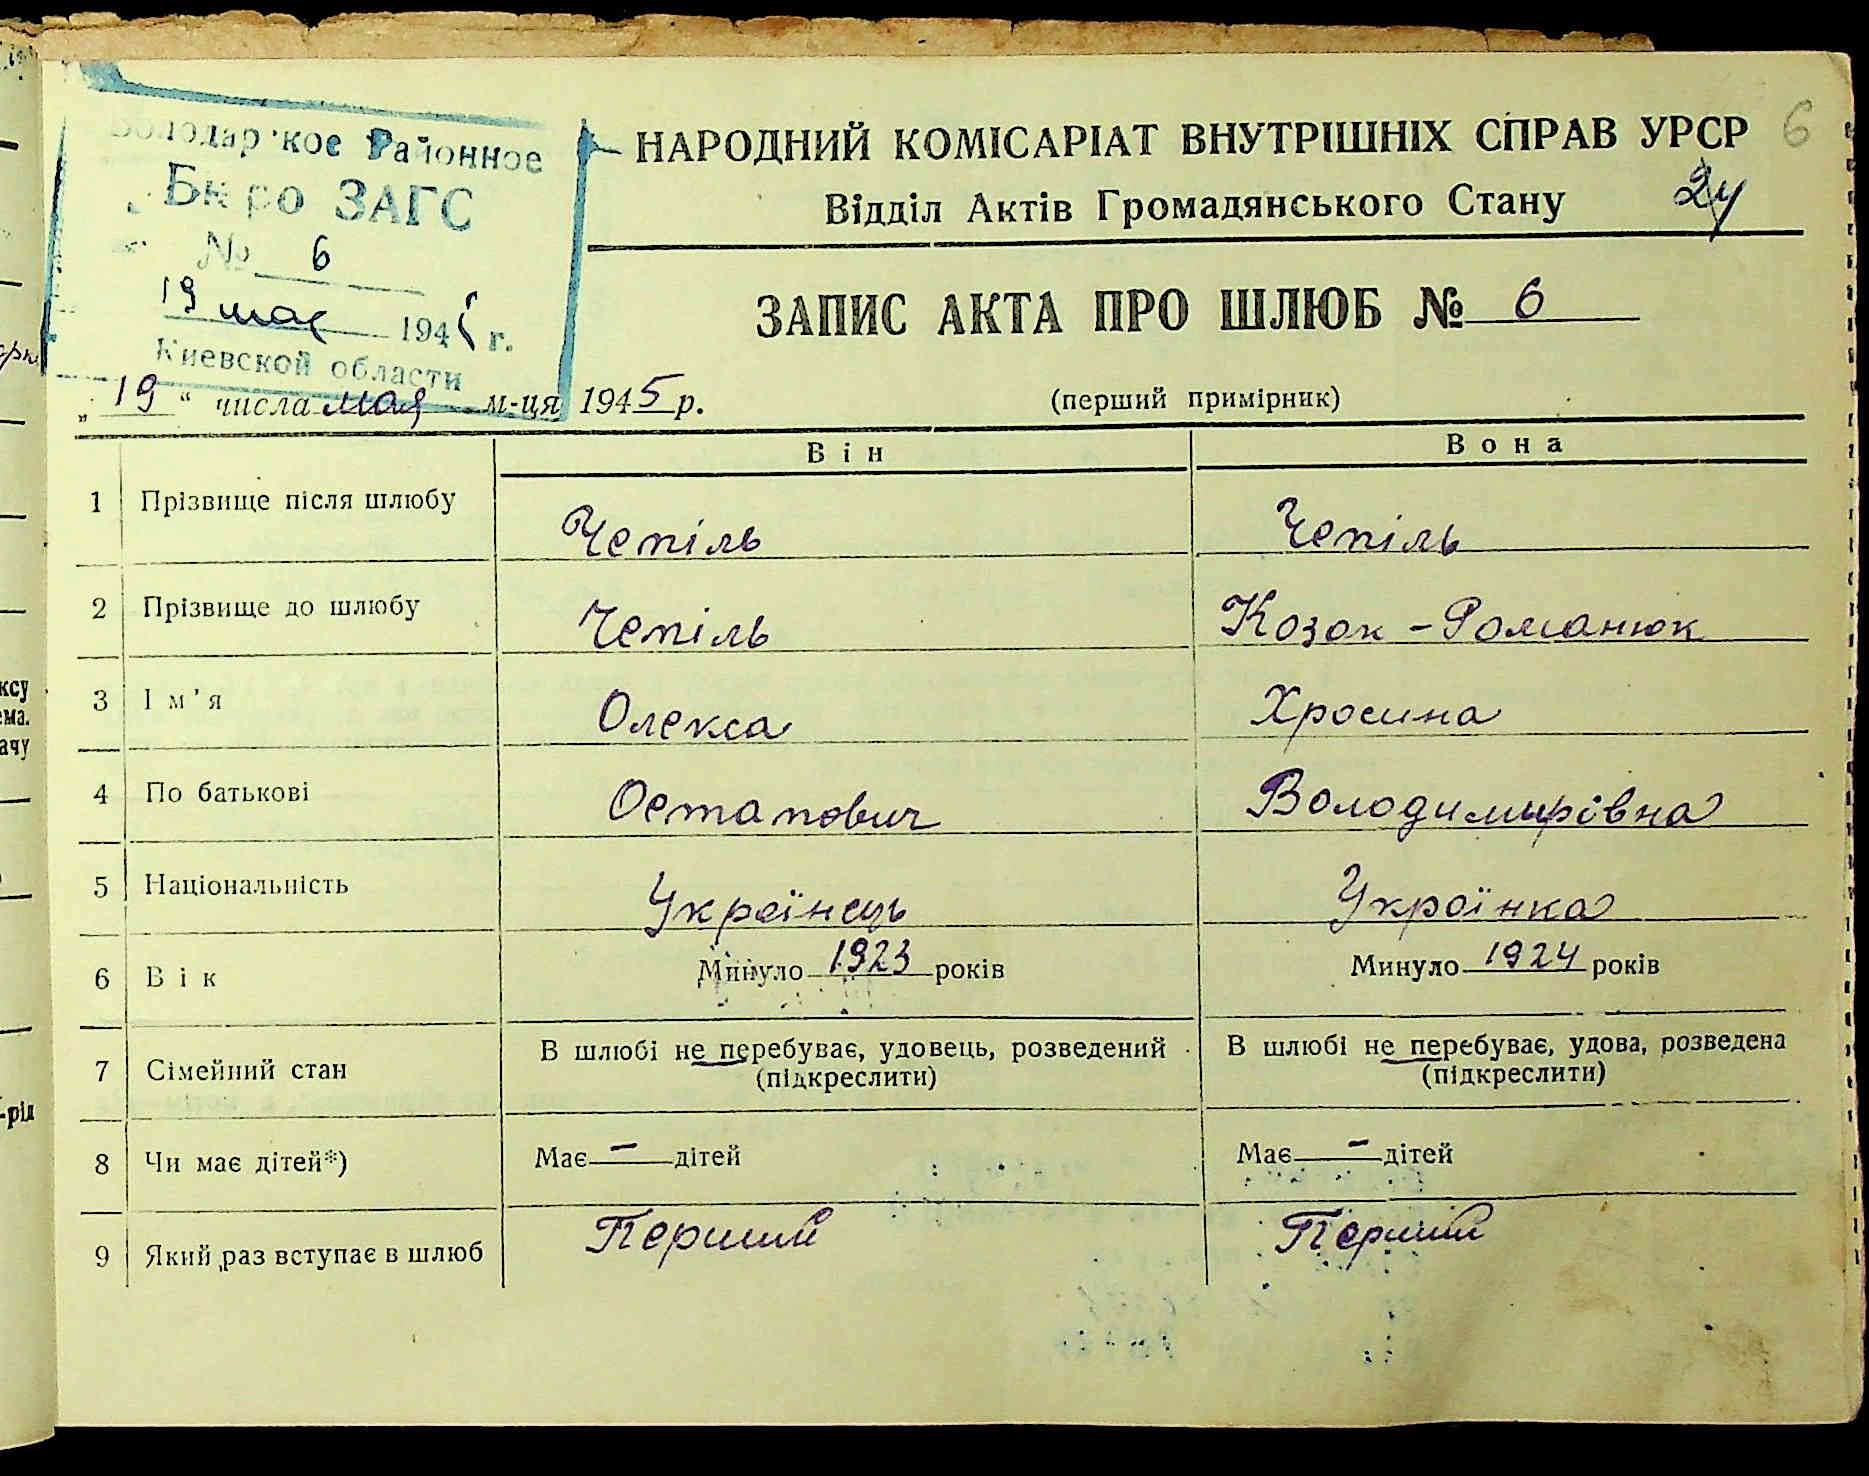 Володарское Районное
Бюро ЗАГС
№ 6
19 мая 1945 г.
Киевской области
6
НАРОДНИЙ КОМІСАРІАТ ВНУТРІШНІХ СПРАВ УРСР
Відділ Актів Громадянського Стану 24
ЗАПИС АКТА ПРО ШЛЮБ № 6
„19“ числа мая м-ця 1945 р. (перший примірник)
Він Вона
1 Прізвище після шлюбу Чепіль Чепіль
2 Прізвище до шлюбу Чепіль Козак - Романюк
3 Ім’я Олекса Хросина
4 По батькові Остапович Володимирівна
5 Національність Українець Українка
6 Вік Минуло 1923 років Минуло 1924 років
7 Сімейний стан В шлюбі не перебуває, удовець, розведений В шлюбі не перебуває, удова, розведена
(підкреслити) (підкреслити)
8 Чи має дітей*) Має — дітей Має — дітей
9 Який раз вступає в шлюб Перший Перший
ксу
ема.
ачу
-рід